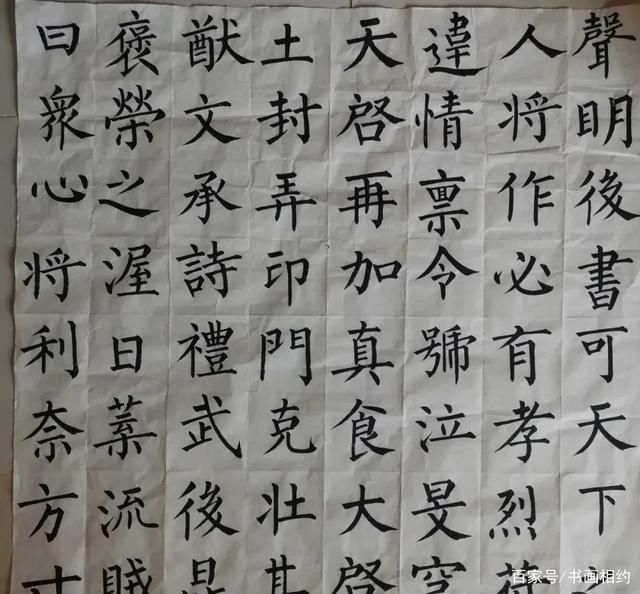 聲明後書可天下之
人将作必有孝烈
違情禀令號泣旻穹
天啓再加真食大啓
土封弄印門克壯其
猷文承詩禮武後
褒榮之渥日流賊
曰衆心将利奈方寸
百家号/书画相约